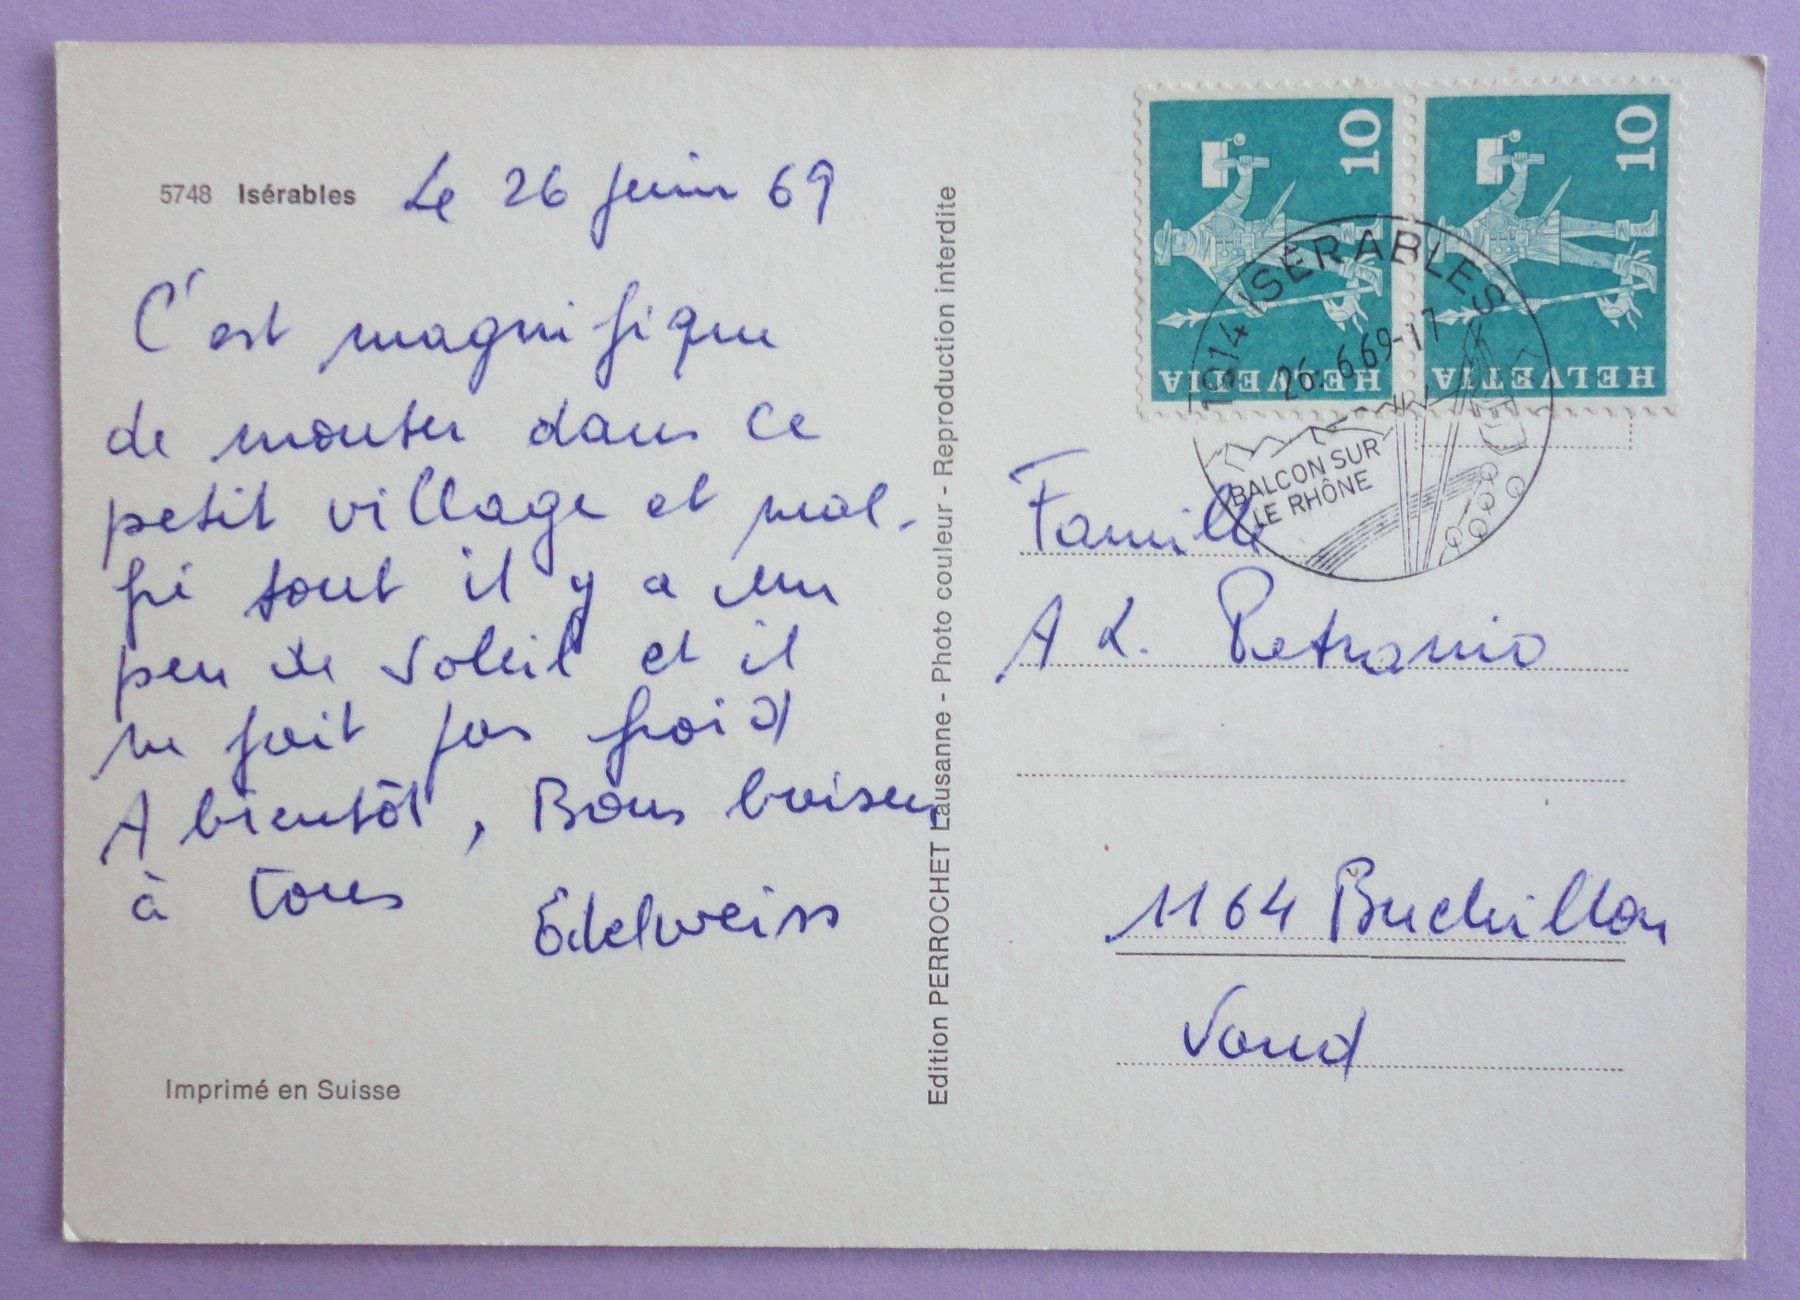 5748 Isérables
Le 26 juin 69
C'est magnifique
de monter dans ce
petit village et mal-
gré tout il y a un
peu de soleil et il
ne fait pas froid
A bientôt, Bons baisers
à tous
Edelweiss
Imprimé en Suisse
Edition PERROCHET Lausanne - Photo couleur - Reproduction interdite
10
HELVETIA
10
HELVETIA
1914 ISÉRABLES
26.6.69-17
BALCON SUR
LE RHÔNE
Famille
A L.
1164 Buchillon
Vaud